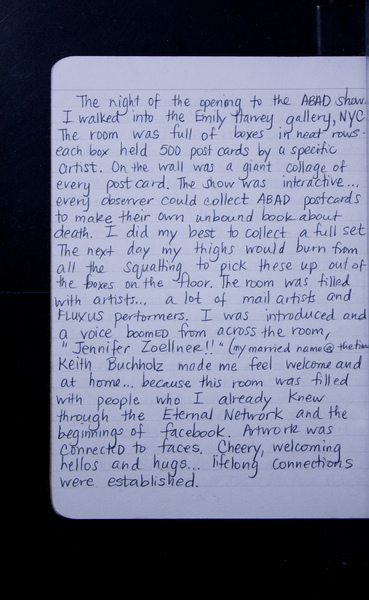 The night of the opening to the ABAD show.
I walked into the Emily Harvey gallery, NYC
The room was full of boxes in neat rows -
each box held 500 post cards by a specific
artist. On the wall was a giant collage of
every post card. The show was interactive...
every observer could collect ABAD postcards
to make their own unbound book about
death. I did my best to collect a full set
The next day my thighs would burn from
all the squatting to pick these up out of
the boxes on the floor. The room was filled
with artists... a lot of mail artists and
FLUXUS performers. I was introduced and
a voice boomed from across the room,
"Jennifer Zoellner!!" (my married name @ the time
Keith Buchholz made me feel welcome and
at home... because this room was filled
with people who I already knew
through the Eternal Network and the
beginnings of facebook. Artwork was
connected to faces. Cheery, welcoming
hellos and hugs... lifelong connections
were established.